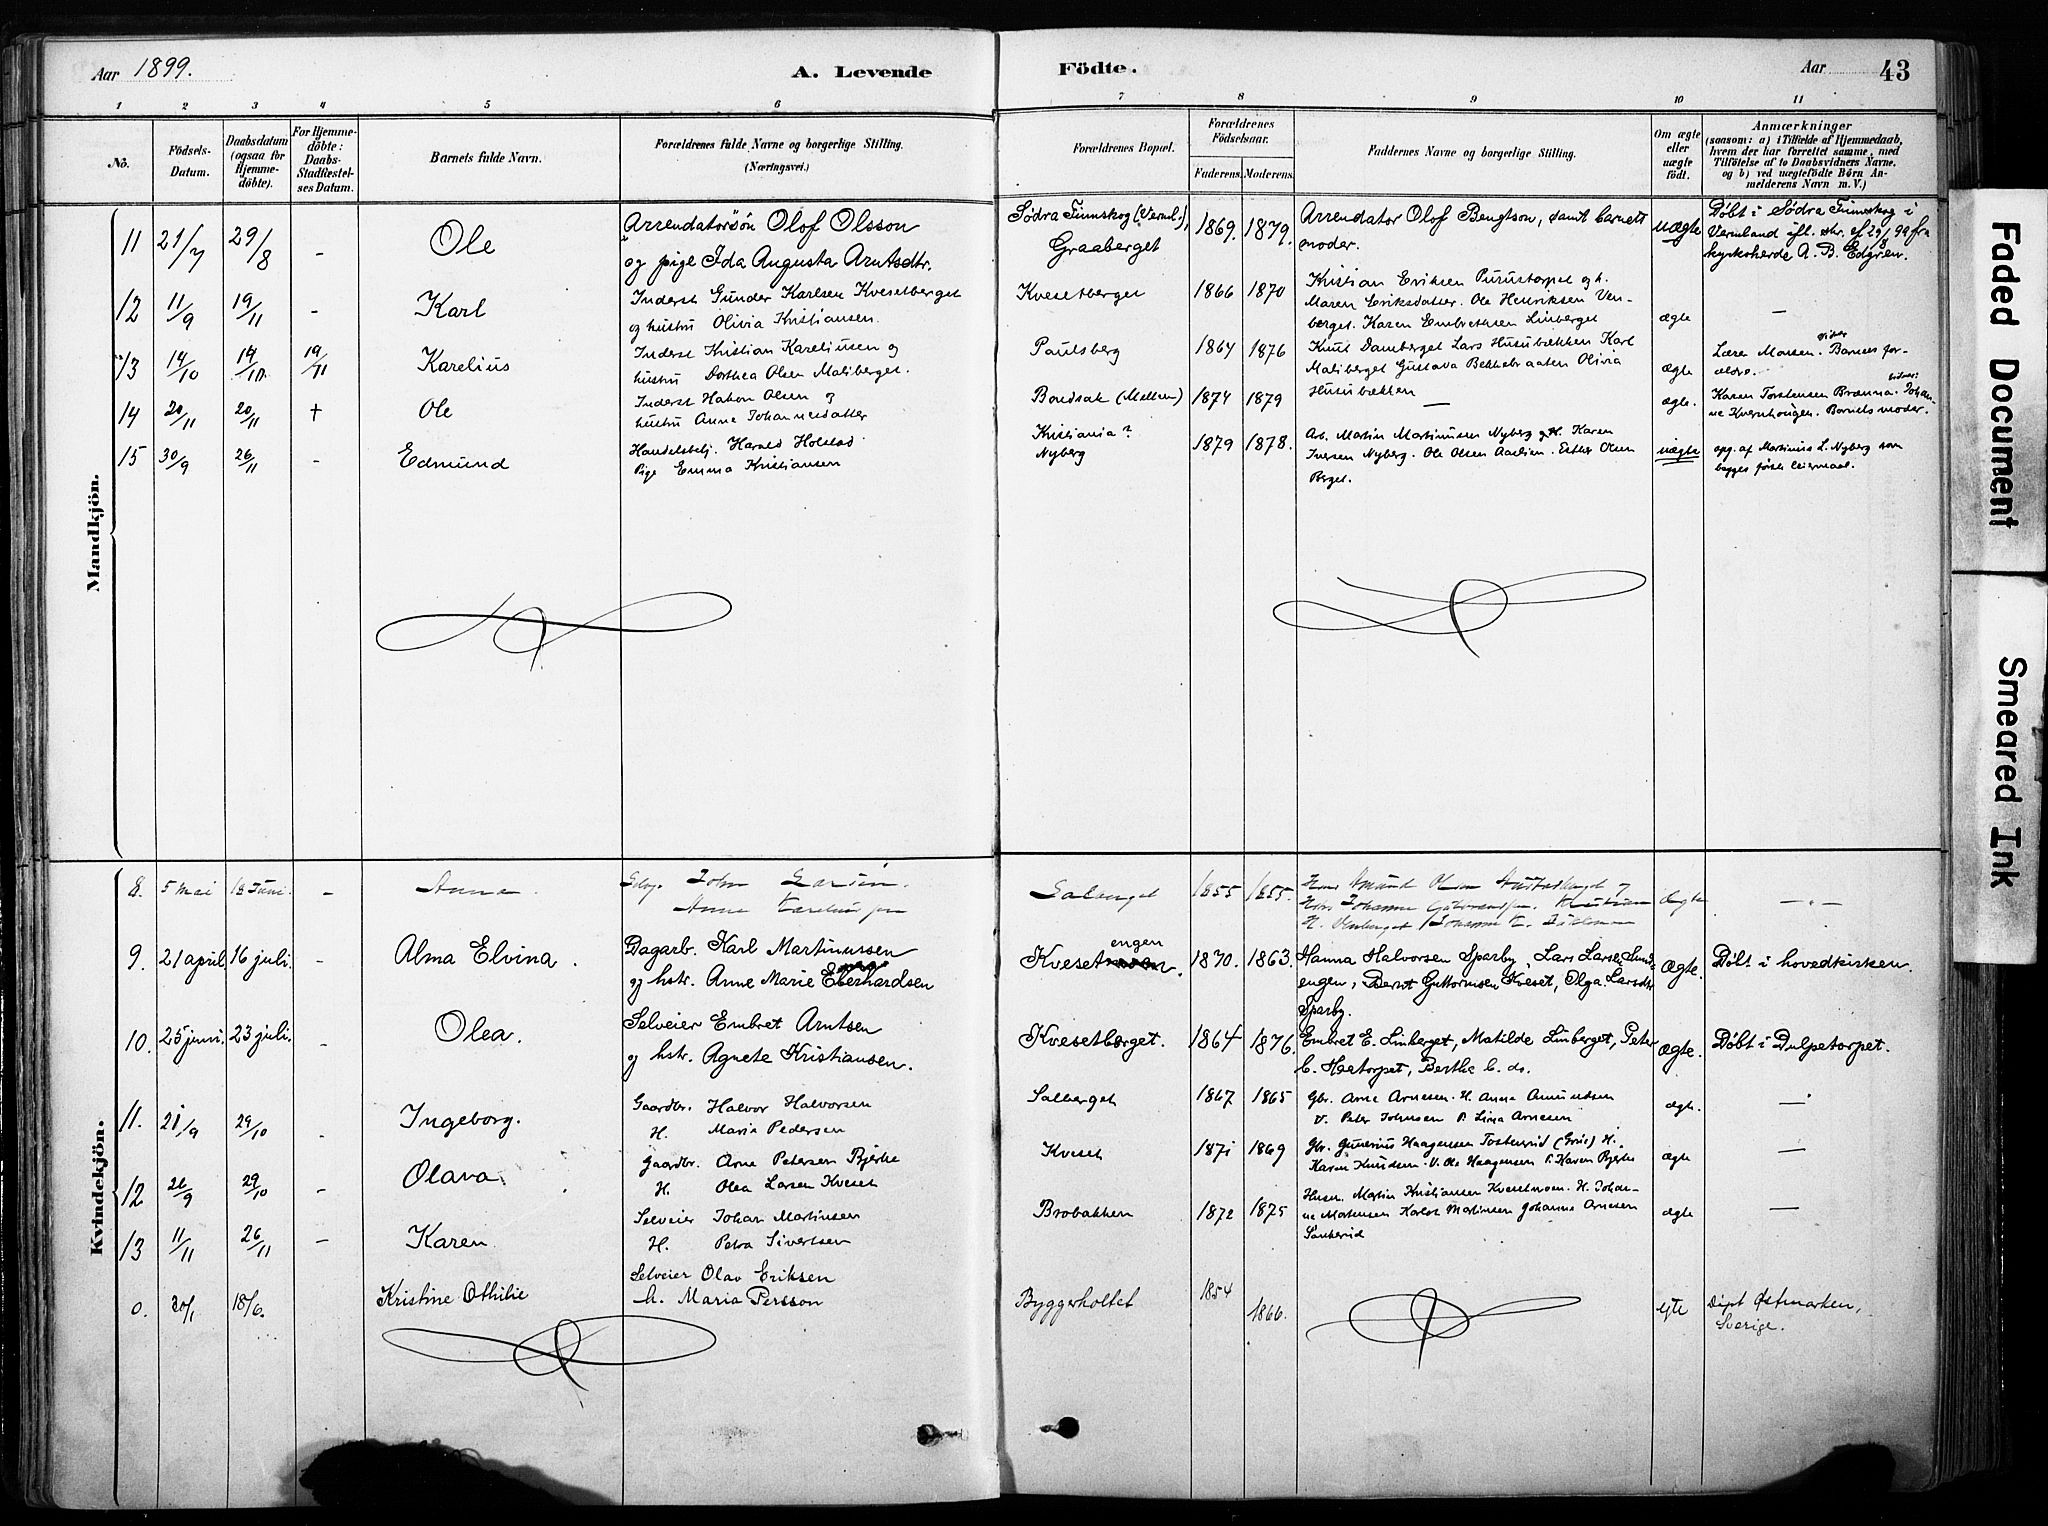 Aar 1899.
A. Levende
Födte.
Aar
43
1 2 3 4 5 6 7 8 9 10 11
No.
Födsels-
Datum.
Daabsdatum
(ogsaa for
Hjemme-
döbte).
For Hjemme-
döbte:
Daabs-
Stadfæstel-
ses Datum.
Barnets fulde Navn.
Forældrenes fulde Navne og borgerlige Stilling.
(Næringsvei.)
Forældrenes Bopæl.
Forældrenes
Födselsaar.
Faderens. Moderens.
Faddernes Navne og borgerlige Stilling.
Om ægte
eller
uægte
födt.
Anmærkninger
(saasom: a) i Tilfælde af Hjemmedaab,
hvem der har forrettet samme, med
Tilföielse af to Daabsvidners Navne,
og b) ved uægtefödte Börn An-
melderens Navn m. V.)
Mandkjön.
11 21/7 29/8 - Ole
Arrendatorsön Olof Olsson
og pige Ida Augusta Arntsdtr.
Södra Finnskog (Verml.),
Graaberget
1869. 1879.
Arrendator Olof Bengtson, samt barnets
moder.
uægte
Döbt i Södra Finnskog i
Vermland ifl. skr. af 29/8 99 fra
kyrkoherde A. B. Edgren.
12 11/9 19/11 - Karl
Inderst Gunder Karlsen Kvesetberget
og hustru Olivia Kristiansen.
Kvesetberget
1866 1870
Kristian Eriksen Purustorpet og h.
Maren Eriksdatter. Ole Henriksen Ven-
berget. Karen Embrethsen Linberget
ægte
—
13 14/10 14/10 19/11 Karelius
Inderst Kristian Kareliusen og
hustru Dorthea Olsen Maliberget.
Paulsberg
1864 1876
Knut Damberget Lars Husubækken Karl
Maliberget Gustava Bekkebraaten Olivia
Husubækken
ægte
Lærer Monsen. Barnets for-
ældre.
14 20/11 20/11 + Ole
Inderst Hakon Olsen og
hustru Anne Johannesdatter
(Mellem)
1874 1879
—
ægte.
Karen Torstensen Brænna. Johan-
ne Kvernhaugen. Barnets moder.
15 30/9 26/11 - Edmund
Handelsbetj. Harald Holstad
Pige Emma Kristiansen
Kristiania?
Nyberg
1879 1878.
Arb. Martin Martinussen Nyberg og H. Karen
Iversen Nyberg. Ole Olsen Aaslien. Esther Olsen
Berget.
uægte
opg. af Martinius L. Nyberg som
begges første leiermaal.
Kvindekjön.
8. 5 Mai 18 Juni - Anna.
John Larsen.
Anna
Salberget
1855 1855.
ægte
9. 21 april 16 juli. Alma Elvina.
Dagarb. Karl Martinussen
og hstr. Anne Marie Eberhardsen
Kvesetengen
1870. 1863.
Hanna Halvorsen Sparby, Lars Larsen Lund-
engen, Bernt Guttormsen Kveset, Olga Larsdtr
Sparby.
Ægte.
Döbt i hovedkirken.
10. 25 juni. 23 juli. - Olea.
Selveier Embret Arntsen
og hstr. Agnete Kristiansen.
Kvesetberget.
1864 1876.
Embret E. Linberget, Matilde Linberget, Peter
C. Hætorpet, Berthe C. do.
Ægte.
Döbt i Dulpetorpet.
11. 21/9 29/10 - Ingeborg.
Gaardbr. Halvor Halvorsen
H. Maria Pedersen
Salberget
1867 1865
Gbr. Arne Arnesen. H. Anna Amundsen
V. Peter Johnsen P. Lina Arnesen
ægte.
—
12 21/9 29/10 - Olava
Gaardbr. Arne Petersen Bjerke
H. Olea Larsen Kveset
Kveset
1871 1869
Gbr. Gunerius Haagensen Tosterud (Grue) H.
Karen Knudsen. V. Ole Haagensen P. Karen Bjerke
ægte
—
13 11/11 26/11 - Karen
Selveier Johan Martinsen
H. Petra Sivertsen
Brobakken
1872 1875
Husm. Martin Kristiansen Kvesetmoen. H. Johan-
ne Mathisen Karl Martinsen Johanne Arnesen
ægte
—
0. 20/1 18/6. Kristine Othilie
Selveier Olav Eriksen
h. Maria Persson
Byggerholtet
1854
1866.
egte
Døpt Østmarken,
Sverige.
Faded Document
Smeared Ink